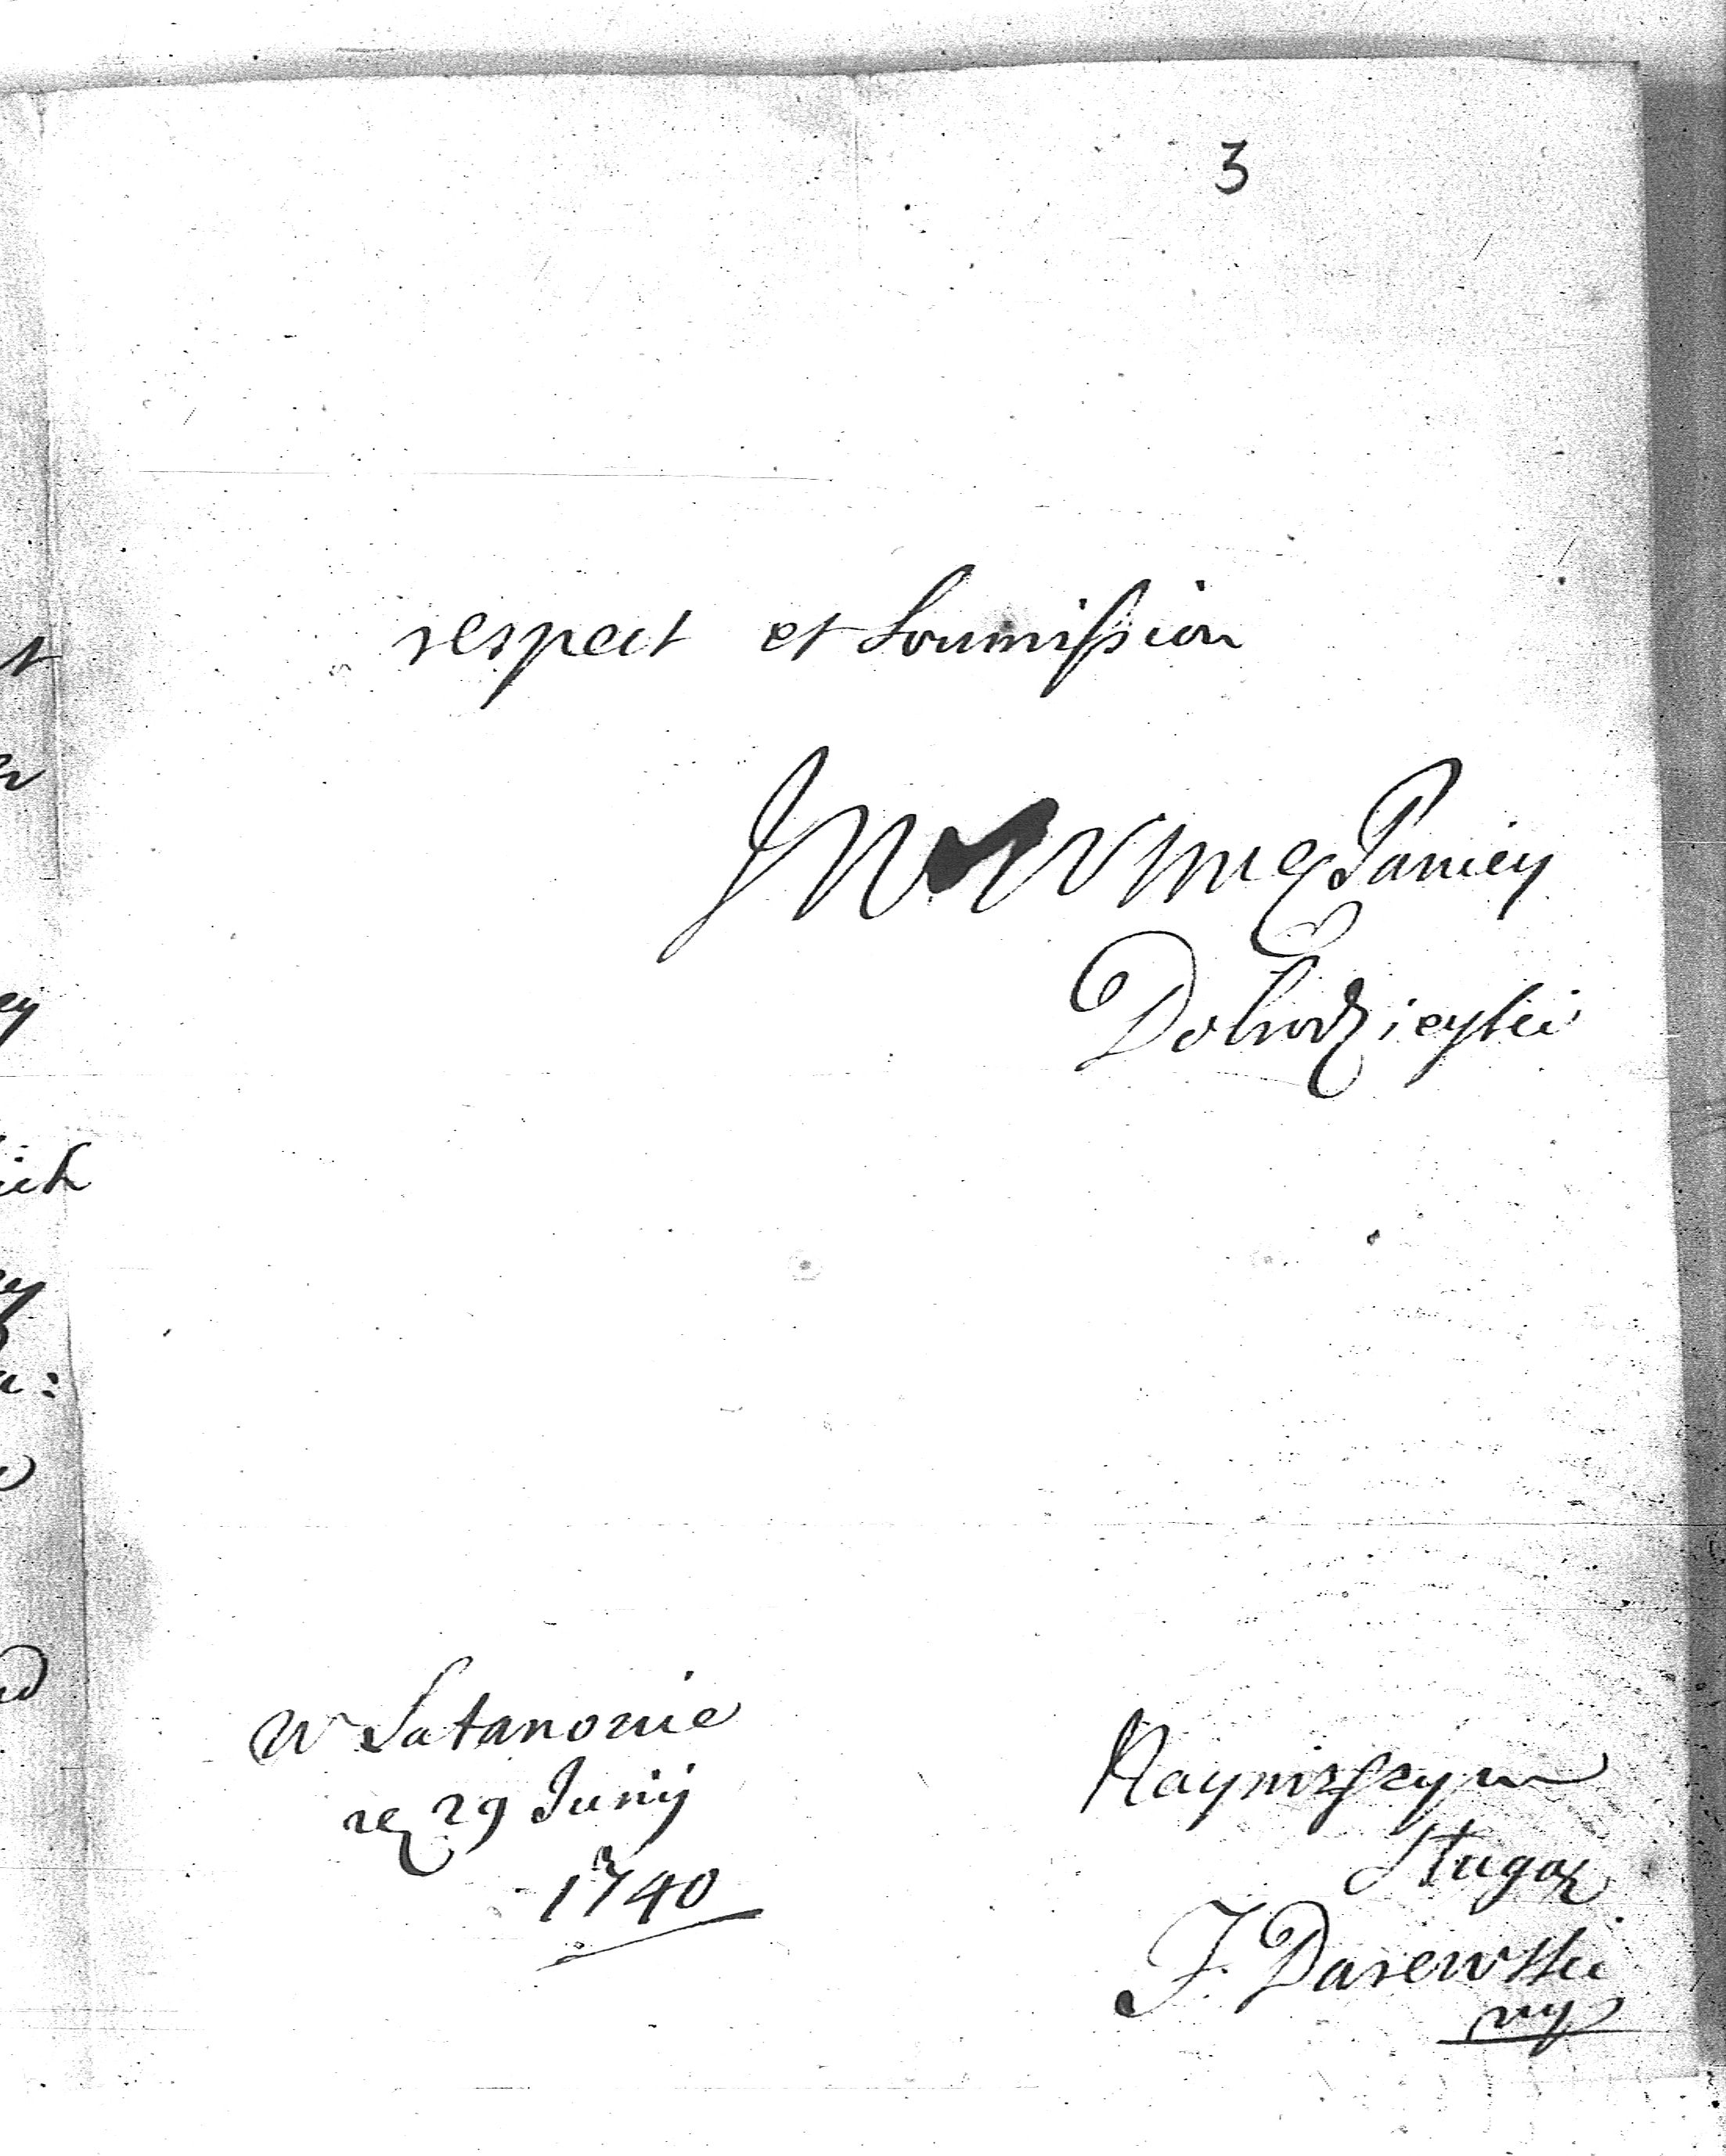 3
respect et Soumission
JW WMć Paniey
Dobrodzieyki
w Satanowie
29 Junij
1740
Nayniższym
Sługą
J. Darewski
mp